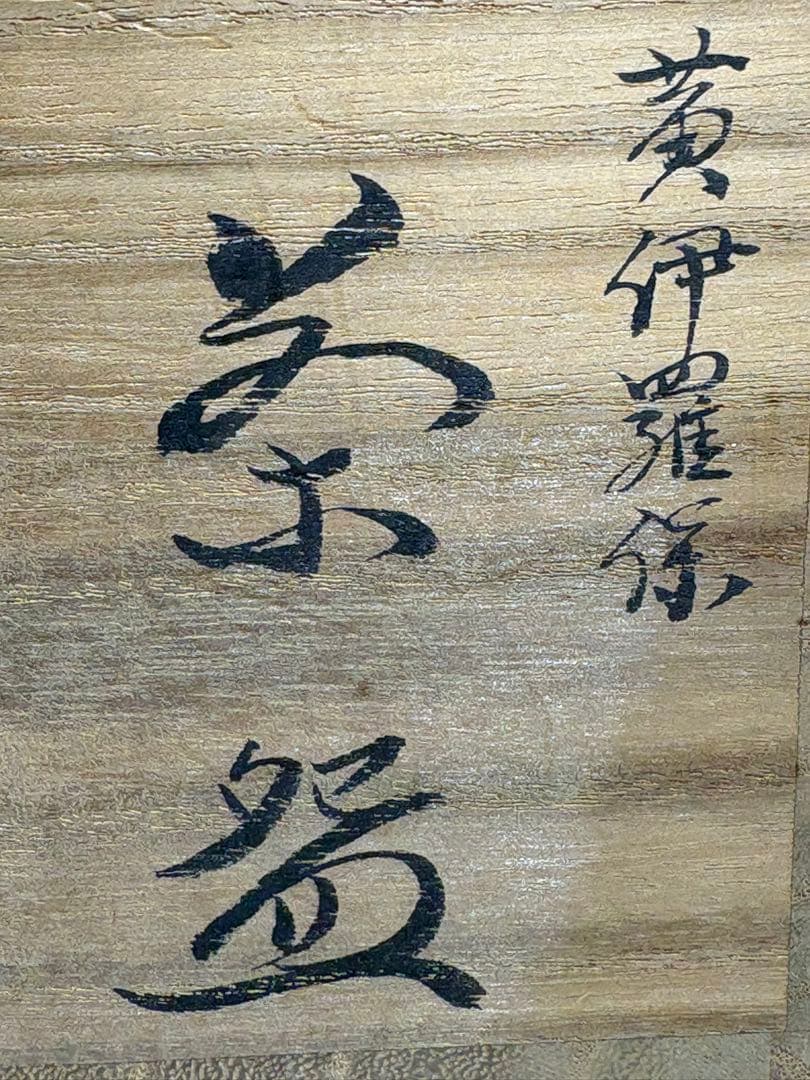 黄伊羅保
茶盌